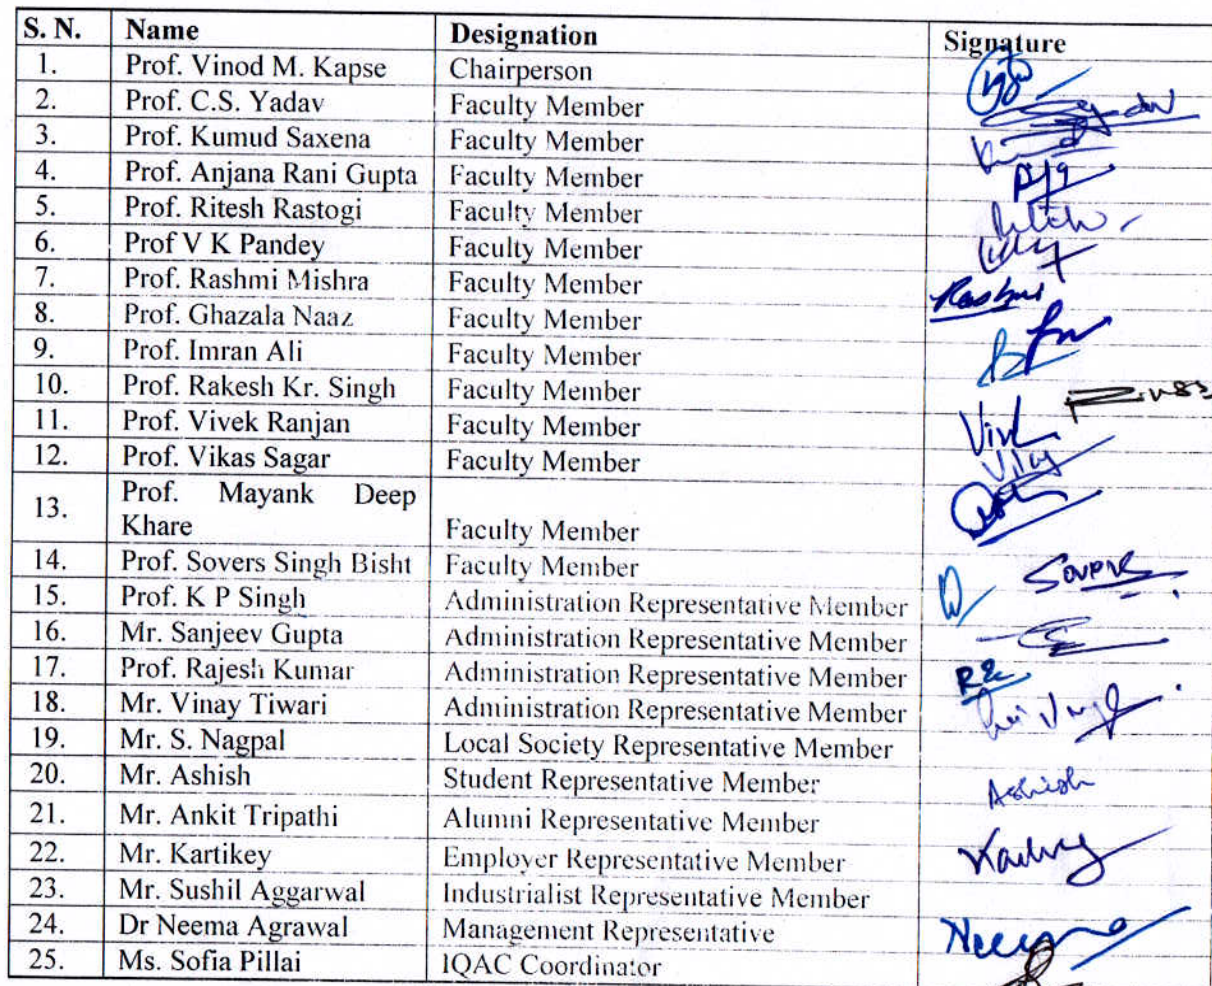 S. N. Name Designation Signature
1. Prof. Vinod M. Kapse Chairperson
2. Prof. C.S. Yadav Faculty Member
3. Prof. Kumud Saxena Faculty Member
4. Prof. Anjana Rani Gupta Faculty Member
5. Prof. Ritesh Rastogi Faculty Member
6. Prof V K Pandey Faculty Member
7. Prof. Rashmi Mishra Faculty Member Rashmi
8. Prof. Ghazala Naaz Faculty Member
9. Prof. Imran Ali Faculty Member
10. Prof. Rakesh Kr. Singh Faculty Member
11. Prof. Vivek Ranjan Faculty Member
12. Prof. Vikas Sagar Faculty Member
13. Prof. Mayank Deep
Khare Faculty Member
14. Prof. Sovers Singh Bisht Faculty Member Sovers
15. Prof. K P Singh Administration Representative Member
16. Mr. Sanjeev Gupta Administration Representative Member
17. Prof. Rajesh Kumar Administration Representative Member
18. Mr. Vinay Tiwari Administration Representative Member
19. Mr. S. Nagpal Local Society Representative Member
20. Mr. Ashish Student Representative Member Ashish
21. Mr. Ankit Tripathi Alumni Representative Member
22. Mr. Kartikey Employer Representative Member
23. Mr. Sushil Aggarwal Industrialist Representative Member
24. Dr Neema Agrawal Management Representative
25. Ms. Sofia Pillai IQAC Coordinator